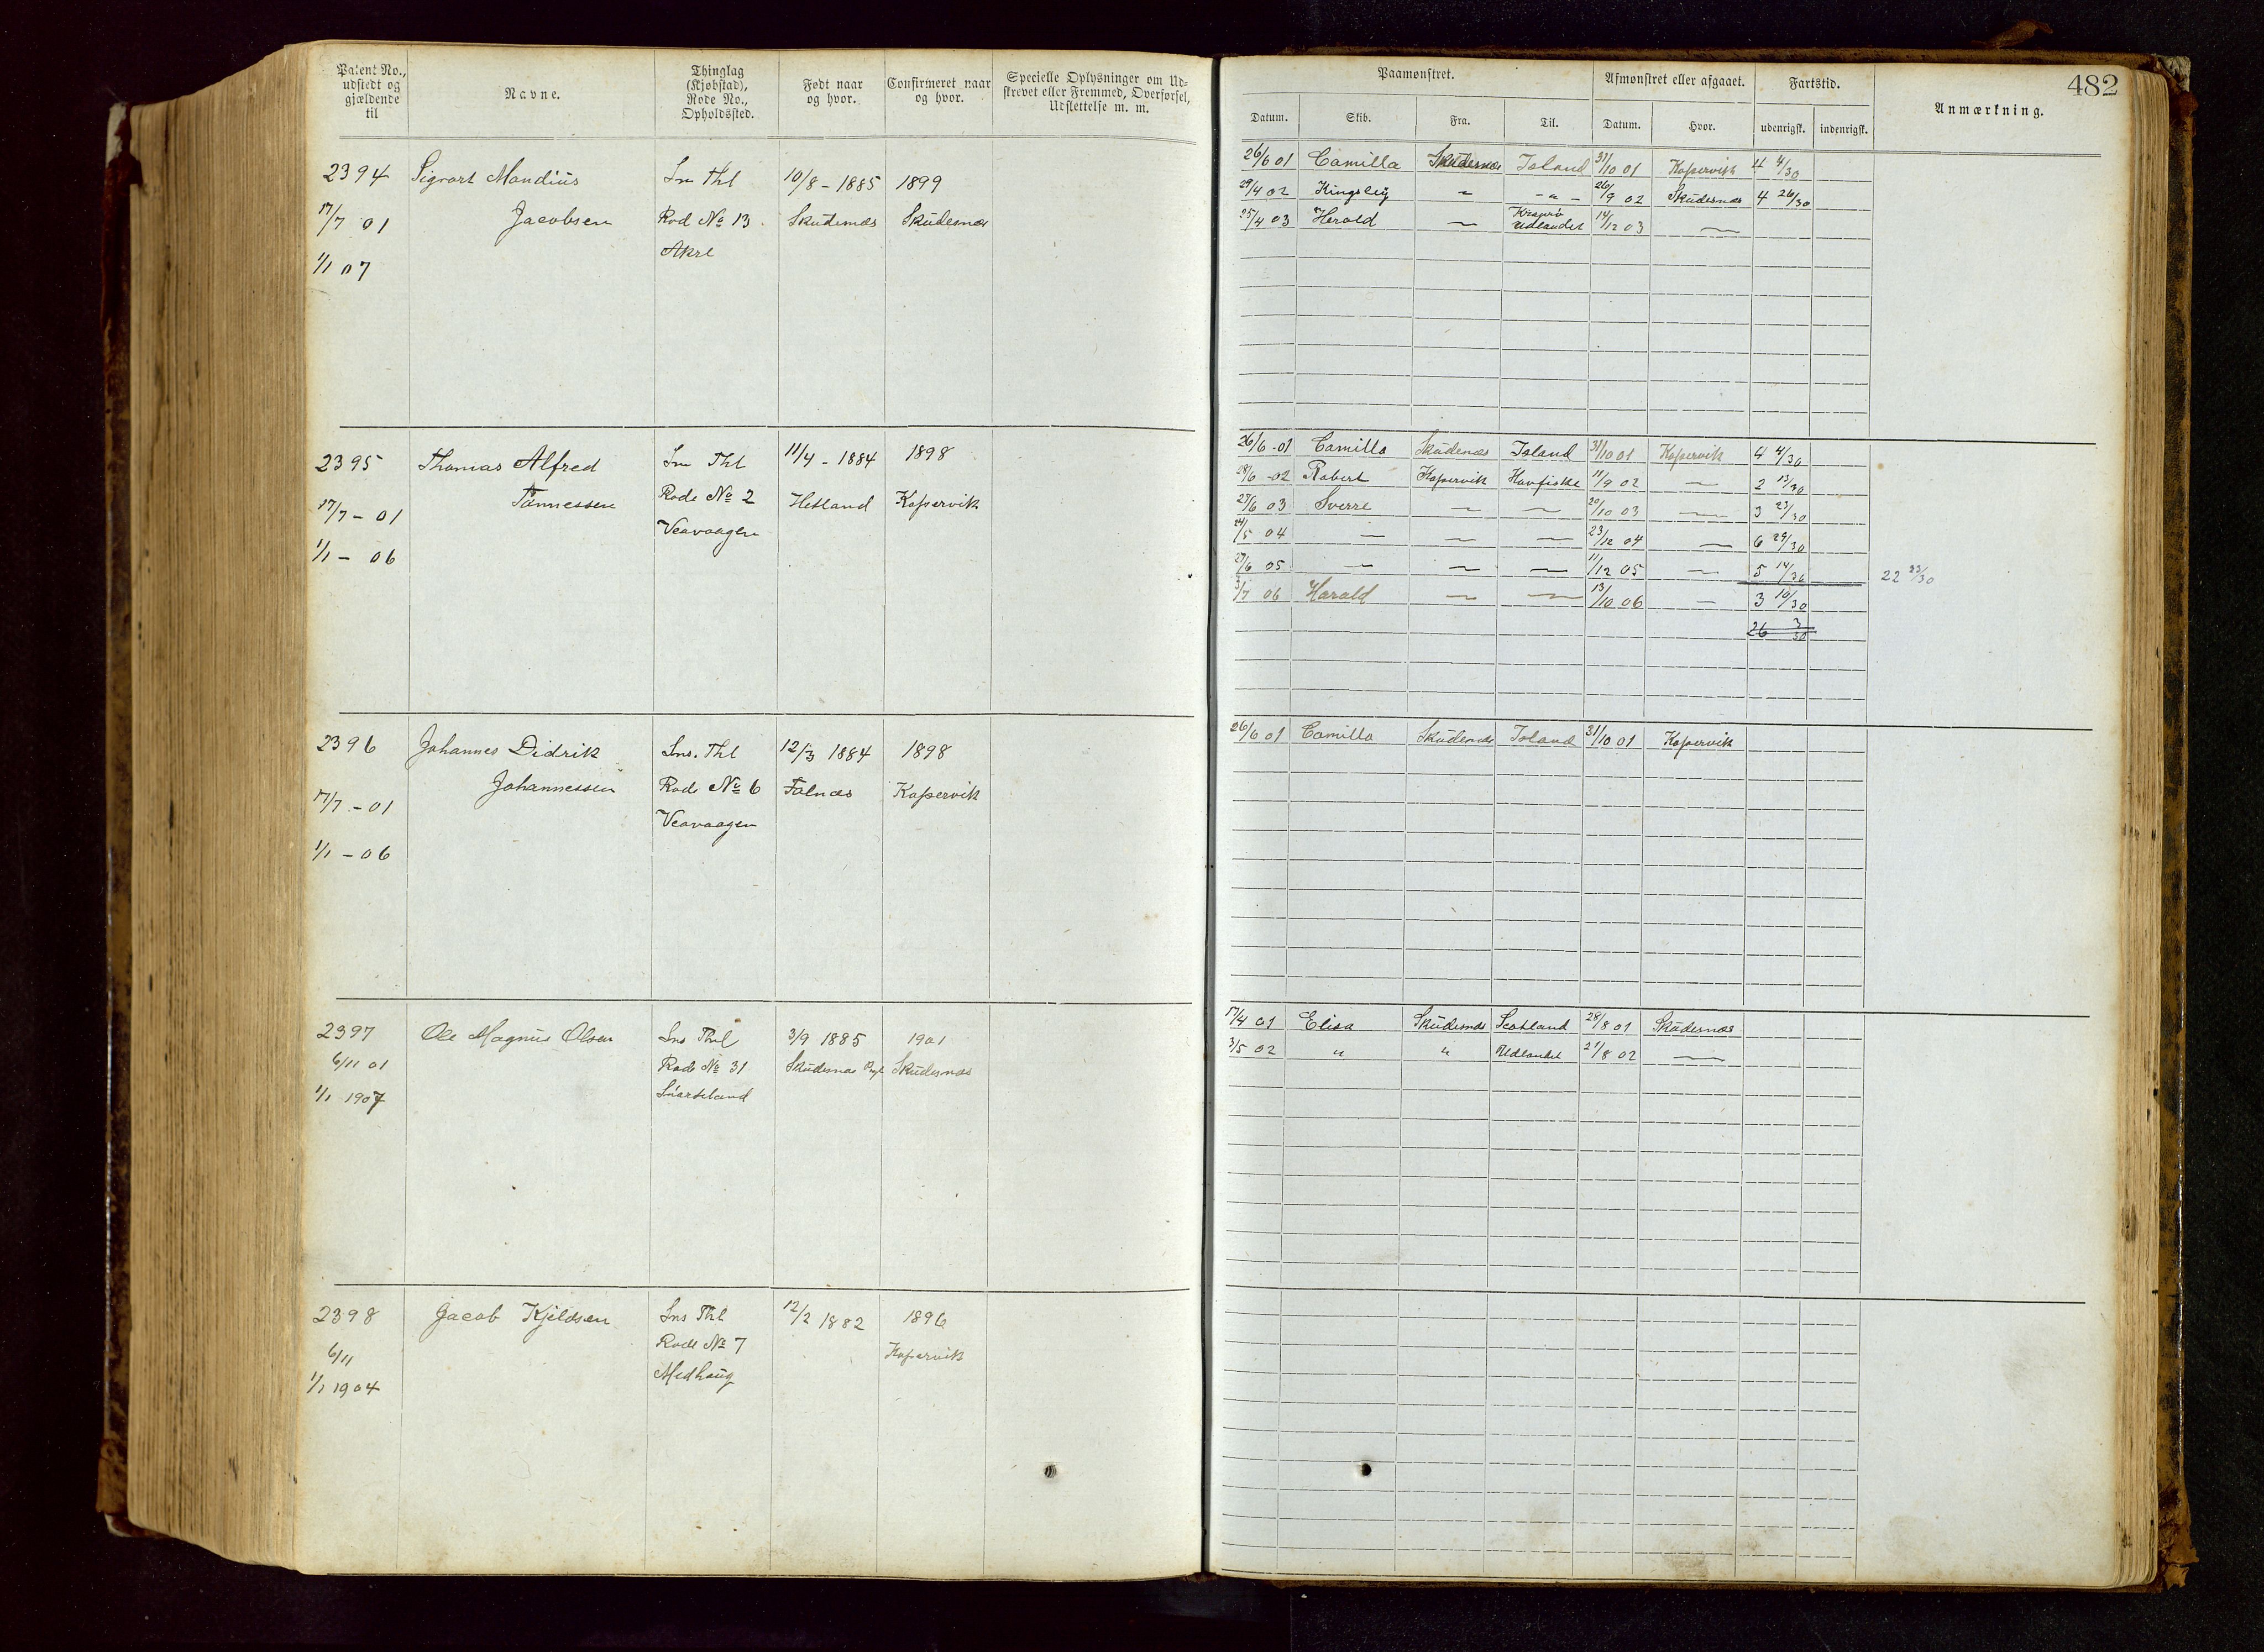 Patent No., udstedt og gjældende til
Navne.
Thinglag (Kjøbstad), Rode No., Opholdssted.
Født naar og hvor.
Confirmeret naar og hvor.
Specielle Oplysninger om Udskrevet eller Fremmed, Overførsel, Udslettelse m. m.
Paamønstret.
Afmønstret eller afgaaet.
Fartstid.
Anmærkning.
482
Datum. Skib. Fra. Til. Datum. Hvor. udenrigsk. indenrigsk.
2394 Sigvart Mandius Sns Thl 10/8 - 1885 1899
17/7 01 Jacobsen Rod № 13 Skudenæs Skudesnæs
1/1 07 Akre
26/6 01 Camilla Skudesnæs Island 31/10 01 Kopervik 4 4/30
29/4 02 Kingsley " - " - 26/9 02 Skudesnæs 4 26/30
25/4 03 Herold — Udlandet 14/12 03 —
2395 Thomas Alfred Sns Thl 11/4 - 1884 1898
17/7 - 01 Tønnessen Rode № 2 Hetland Kopervik
1/1 - 06 Veavaagen
26/6 - 01 Camilla Skudenæs Island 31/10 01 Kopervik 4 4/30
28/6 - 02 Robert Kopervik Havfiske 11/9 02 — 2 13/30
27/6 03 Sverre — — 20/10 03 — 3 23/30
24/5 04 — — — 23/12 04 — 6 29/30
27/6 05 — — — 11/12 05 — 5 14/30 22 23/30
3/7 06 Harald — — 13/10 06 — 3 10/30
26 3/30
2396 Johannes Didrik Sns. Thl 12/3 1884 1898
17/7 - 01 Johannessen Rode № 6 Falnæs Kopervik
1/1 - 06 Veavaagen
26/6 01 Camilla Skudenæs Island 31/10 01 Kopervik
2397 Ole Magnus Olsen Sns Thl 3/9 1885 1901
6/11 01 Rode № 31 Skudesnæs Skudesnæs
1/1 1907
17/4 01 Elisa Skudesnæs Scotland 28/8 01 Skudesnæs
3/5 02 " " Udlandet 21/8 02 —
2398 Jacob Kjeldsen Sns Thl 12/2 1882 1896
6/11 Rode № 7 Kopervik
1/1 1904 Medhaug